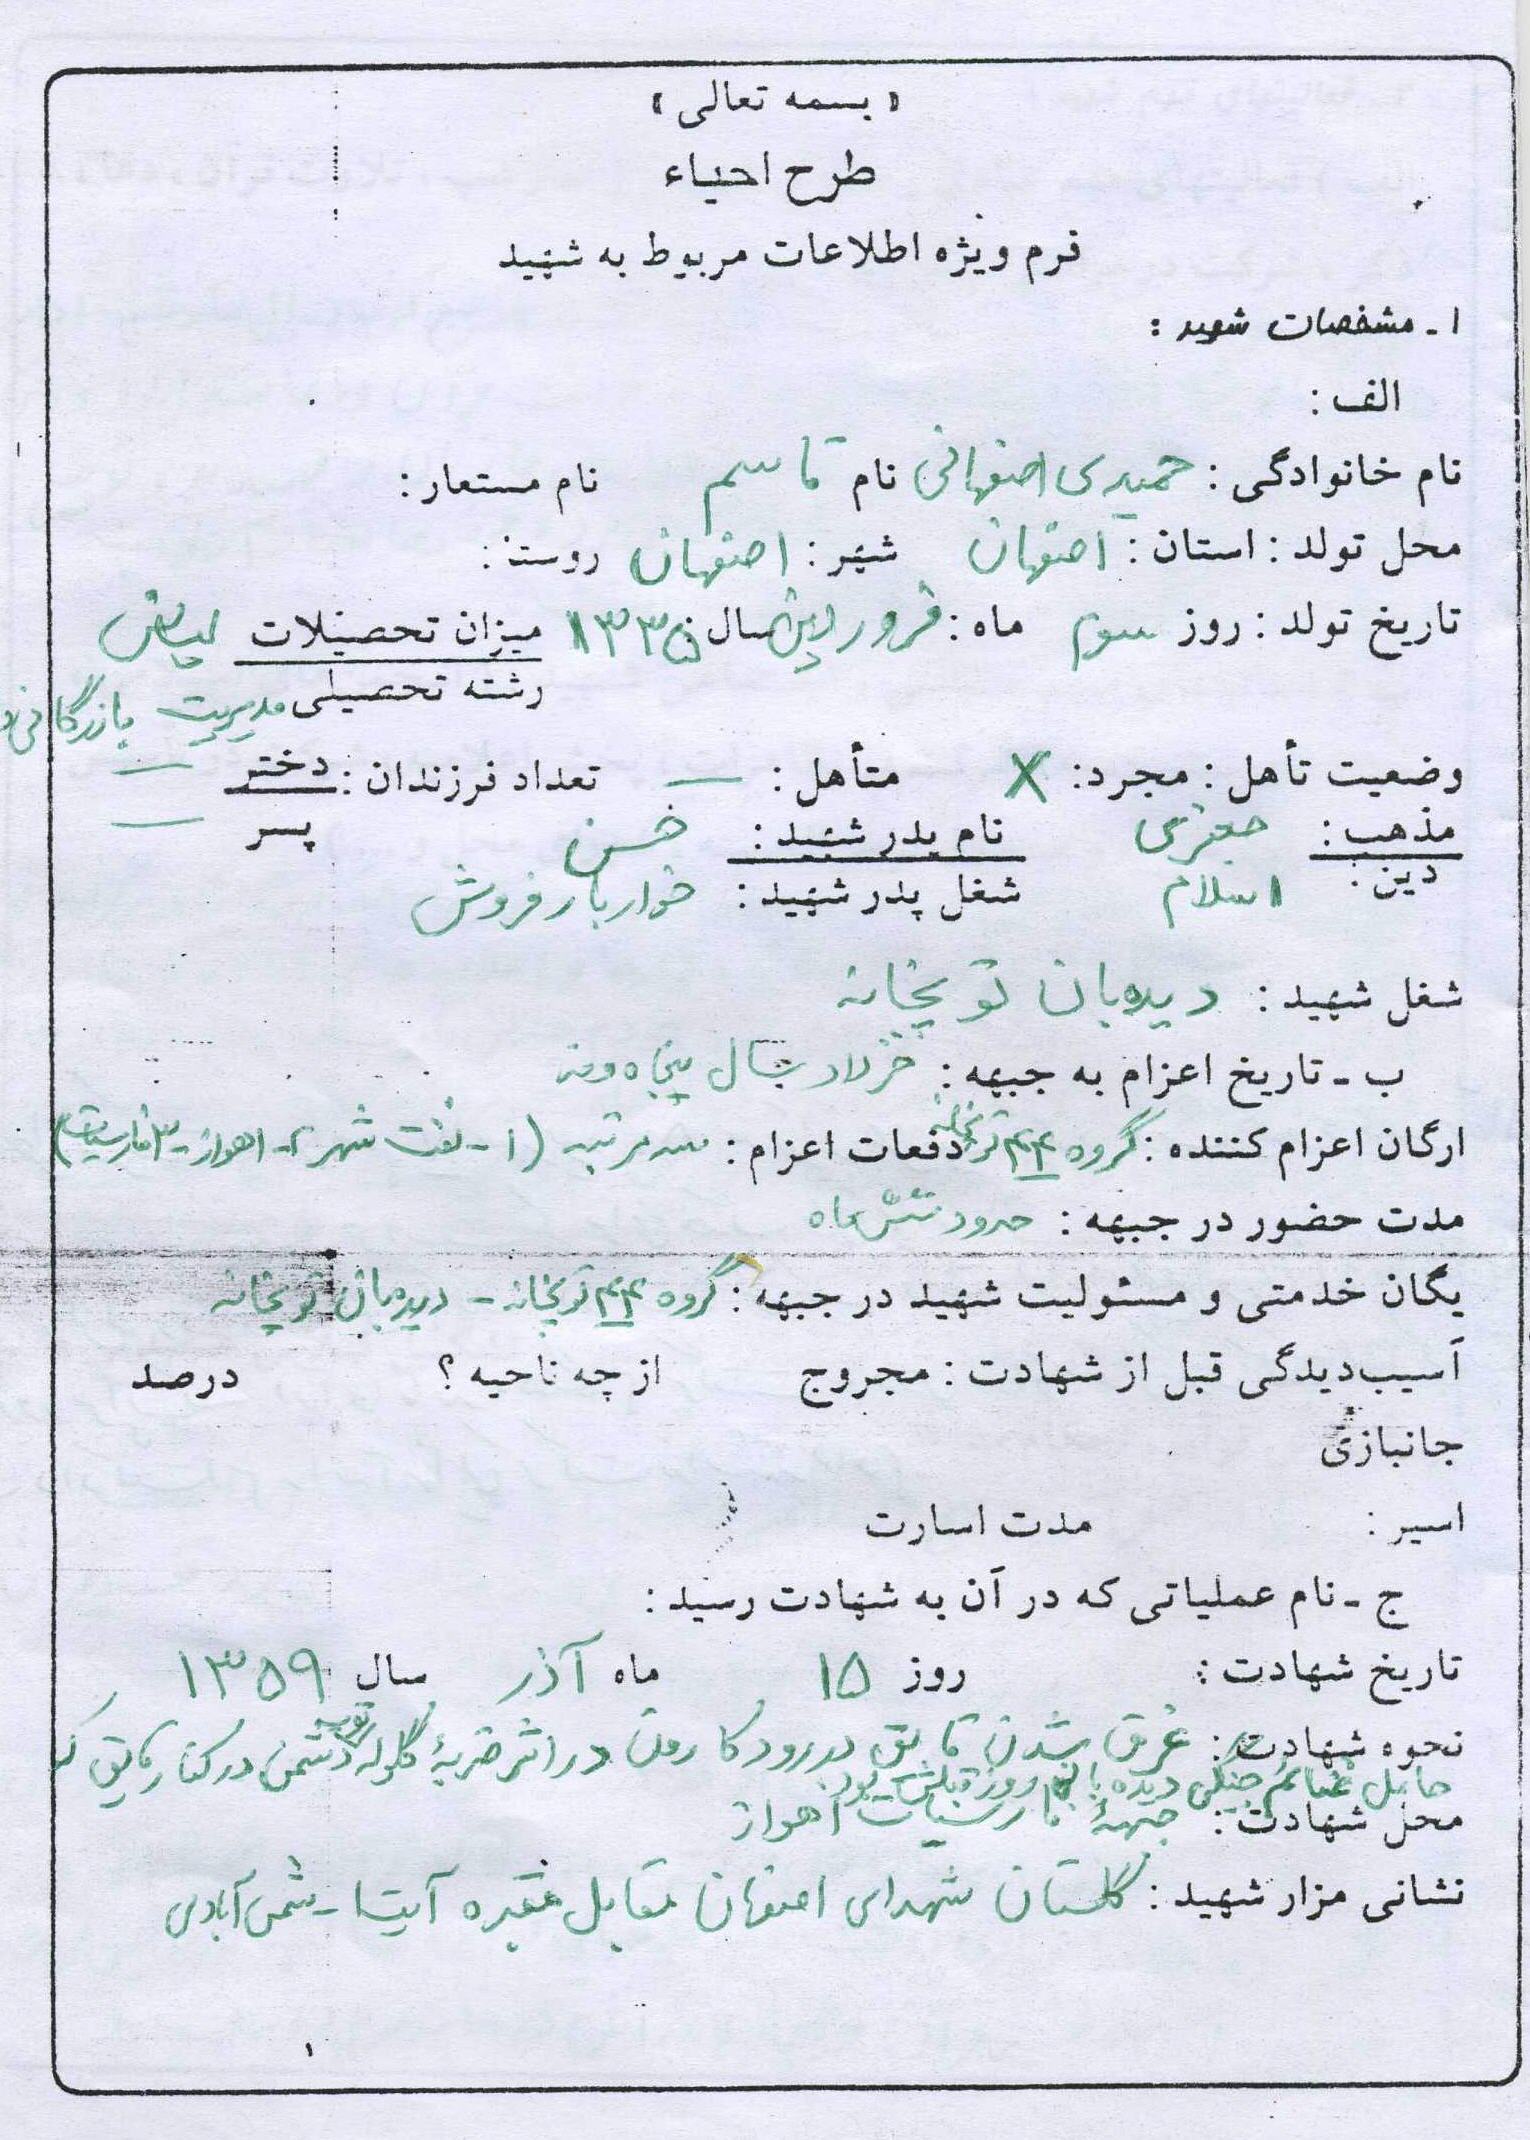 « بسمه تعالی »
طرح احیاء
فرم ویژه اطلاعات مربوط به شهید
۱ - مشخصات شهید :
الف :
نام خانوادگی : حمیدی اصفهانی نام قاسم نام مستعار :
محل تولد : استان : اصفهان شهر : اصفهان روستا :
تاریخ تولد : روز سوم ماه : فروردین سال ۱۳۳۵ میزان تحصیلات لیسانس
رشته تحصیلی مدیریت بازرگانی
وضعیت تأهل : مجرد : X متأهل : — تعداد فرزندان : دختر —
پسر —
مذهب : جعفری نام پدر شهید : حسن
دین : اسلام شغل پدر شهید : خواربار فروش
شغل شهید : دیده‌بان توپخانه
ب - تاریخ اعزام به جبهه : خرداد سال پنجاه و نه
ارگان اعزام کننده : گروه ۴۴ توپخانه دفعات اعزام : سه مرتبه (۱- نفت شهر ۲- اهواز - ۳ فارسیات)
مدت حضور در جبهه : حدود شش ماه
یگان خدمتی و مسئولیت شهید در جبهه : گروه ۴۴ توپخانه - دیده‌بان توپخانه
آسیب‌دیدگی قبل از شهادت : مجروح از چه ناحیه ؟ درصد
جانبازی
اسیر : مدت اسارت
ج - نام عملیاتی که در آن به شهادت رسید :
تاریخ شهادت : روز ۱۵ ماه آذر سال ۱۳۵۹
نحوه شهادت : غرق شدن قایق در رود کارون در اثر ضربهٔ گلوله توپ دشمن در کنار قایق که
حامل غنائم جنگی دیده بانی روز قبلش بود
محل شهادت : جبههٔ فارسیات اهواز
نشانی مزار شهید : گلستان شهدای اصفهان مقابل مقبره آیت‌ا - شمس آبادی
۱